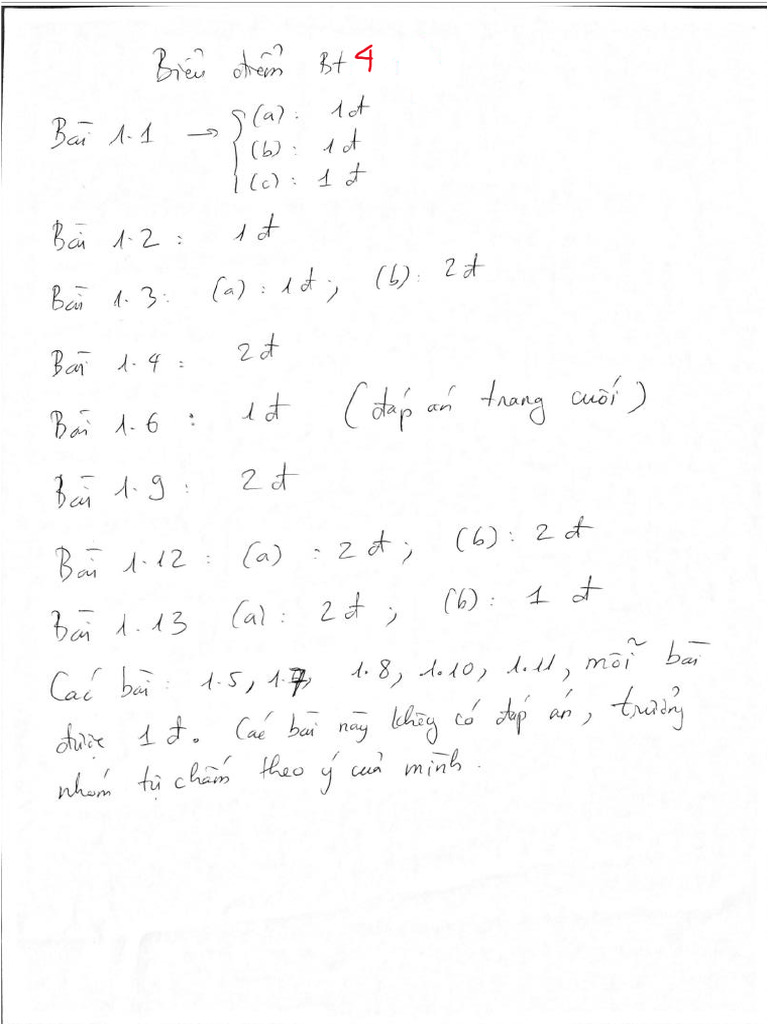 Biểu điểm Bt 4
Bài 1.1 → (a): 1đ
(b): 1đ
(c): 1đ
Bài 1.2: 1đ
Bài 1.3: (a): 1đ; (b): 2đ
Bài 1.4: 2đ
Bài 1.6: 1đ (đáp án trang cuối)
Bài 1.9: 2đ
Bài 1.12: (a): 2đ; (b): 2đ
Bài 1.13 (a): 2đ; (b): 1đ
Các bài: 1.5, 1.7, 1.8, 1.10, 1.11, mỗi bài
được 1đ. Các bài này không có đáp án, trưởng
nhóm tự chấm theo ý của mình.